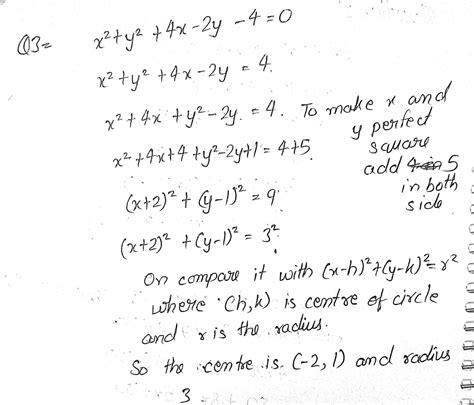 Q3= x²+y²+4x-2y-4=0
x²+y²+4x-2y = 4.
x²+4x+y²-2y. = 4. To make x and
y perfect
square
x²+4x+4+y²-2y+1=4+5.
add 4 in 5
in both
side
(x+2)²+(y-1)²=9
(x+2)²+(y-1)²=3²
On compare it with (x-h)²+(y-k)²=r²
where (h,k) is centre of circle
and r is the radius.
So the centre is (-2,1) and radius
3